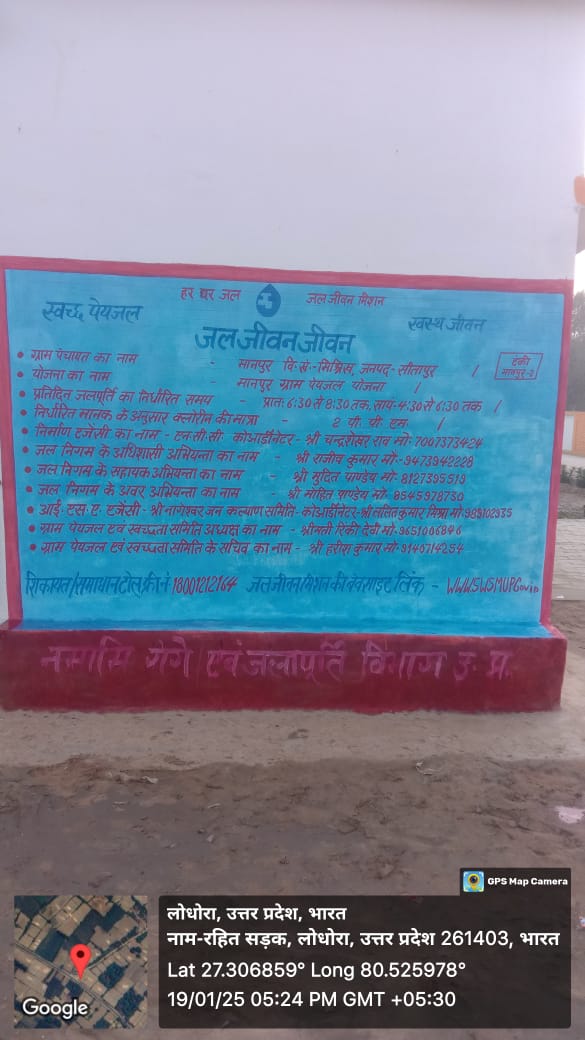 हर घर जल जल जीवन मिशन
स्वच्छ पेयजल स्वस्थ जीवन
जल जीवन जीवन
• ग्राम पंचायत का नाम - मानपुर वि.ख.-मिश्रिख, जनपद-सीतापुर /
टंकी
मानपुर-2
• योजना का नाम - मानपुर ग्राम पेयजल योजना /
• प्रतिदिन जलपूर्ति का निर्धारित समय - प्रातः 6:30 से 8:30 तक, सायं-4:30 से 6:30 तक /
• निर्धारित मानक के अनुसार क्लोरीन की मात्रा - 2 पी. पी. एम. /
• निर्माण एजेंसी का नाम - एन.सी.सी. कोआर्डीनेटर- श्री चन्द्रशेखर राव मो:7007373424
• जल निगम के अधिशासी अभियन्ता का नाम - श्री राजीव कुमार मो:-9473942228
• जल निगम के सहायक अभियन्ता का नाम - श्री मुदित पाण्डेय मो. 8127395519
• जल निगम के अवर अभियन्ता का नाम - श्री मोहित पाण्डेय मो. 8545978730
• आई. एस. ए. एजेंसी - श्री नागेश्वर जन कल्याण समिति- कोआर्डीनेटर-श्री ललित कुमार मिश्रा मो:
• ग्राम पेयजल एवं स्वच्छता समिति अध्यक्ष का नाम - श्रीमती रिंकी देवी मो. 9651006846
• ग्राम पेयजल एवं स्वच्छता समिति के सचिव का नाम - श्री हरीश कुमार मो. 9140714254
शिकायत/समाधान टोल फ्री नं 18001212164 जल जीवन मिशन की वेबसाइट लिंक - WWW.SWSMUP.Gov.in
नमामि गंगे एवं जलापूर्ति विभाग उ. प्र.
GPS Map Camera
लोधोरा, उत्तर प्रदेश, भारत
नाम-रहित सड़क, लोधोरा, उत्तर प्रदेश 261403, भारत
Lat 27.306859° Long 80.525978°
19/01/25 05:24 PM GMT +05:30
Google